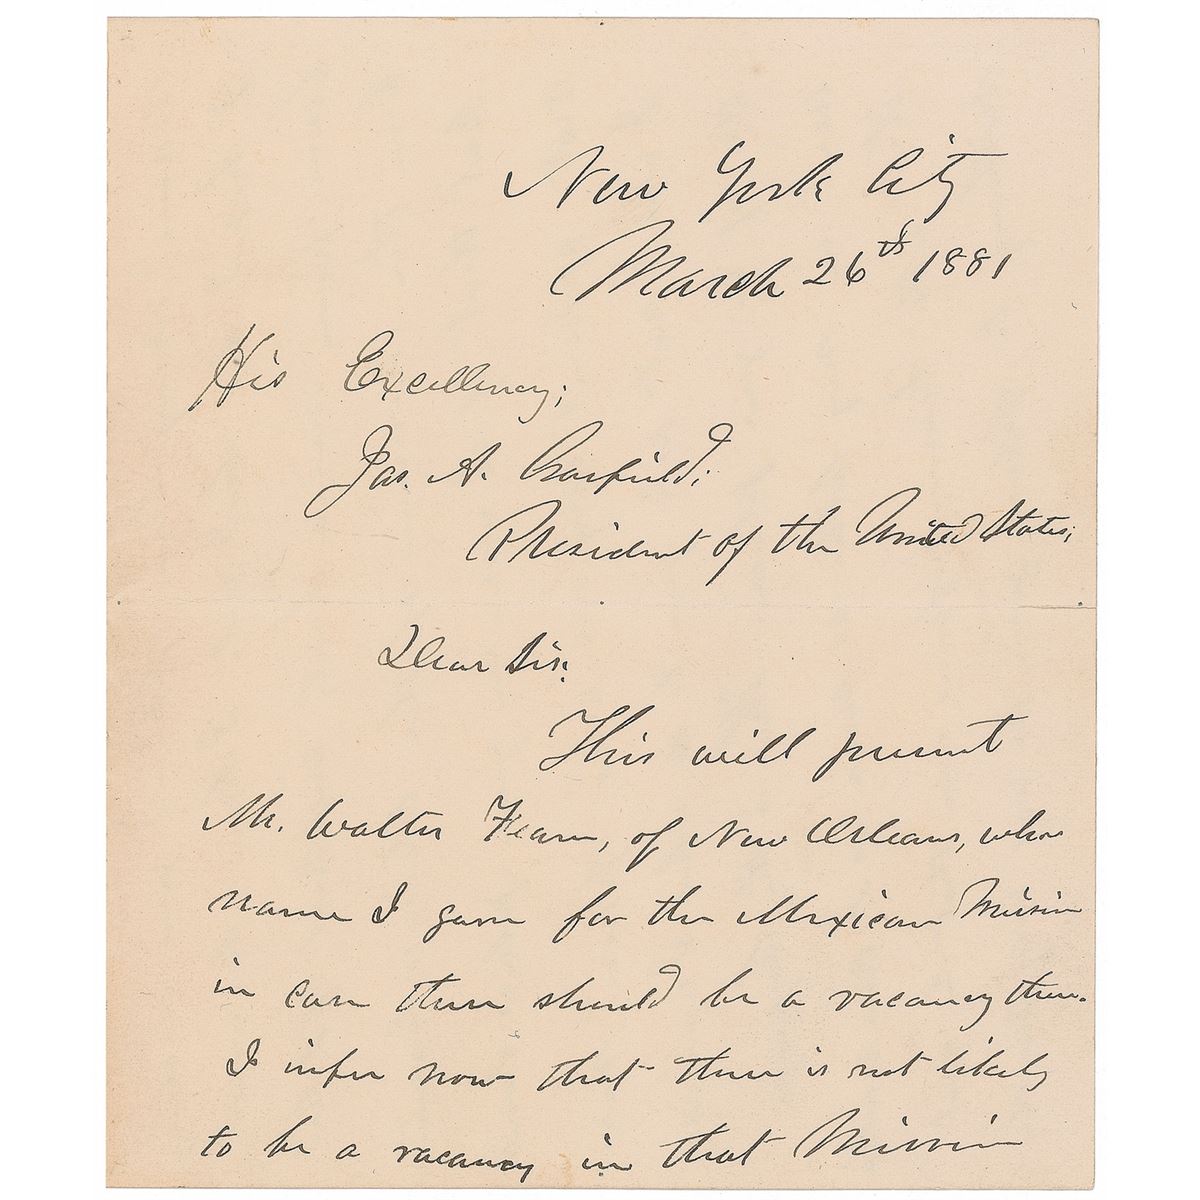 New York City
March 26th 1881
His Excellency;
Jas. A. Garfield;
President of the United States;
Dear Sir:
This will present
Mr. Walter Fearn, of New Orleans, whose
name I gave for the Mexican Mission
in case there should be a vacancy there.
I infer now that there is not likely
to be a vacancy in that Mission